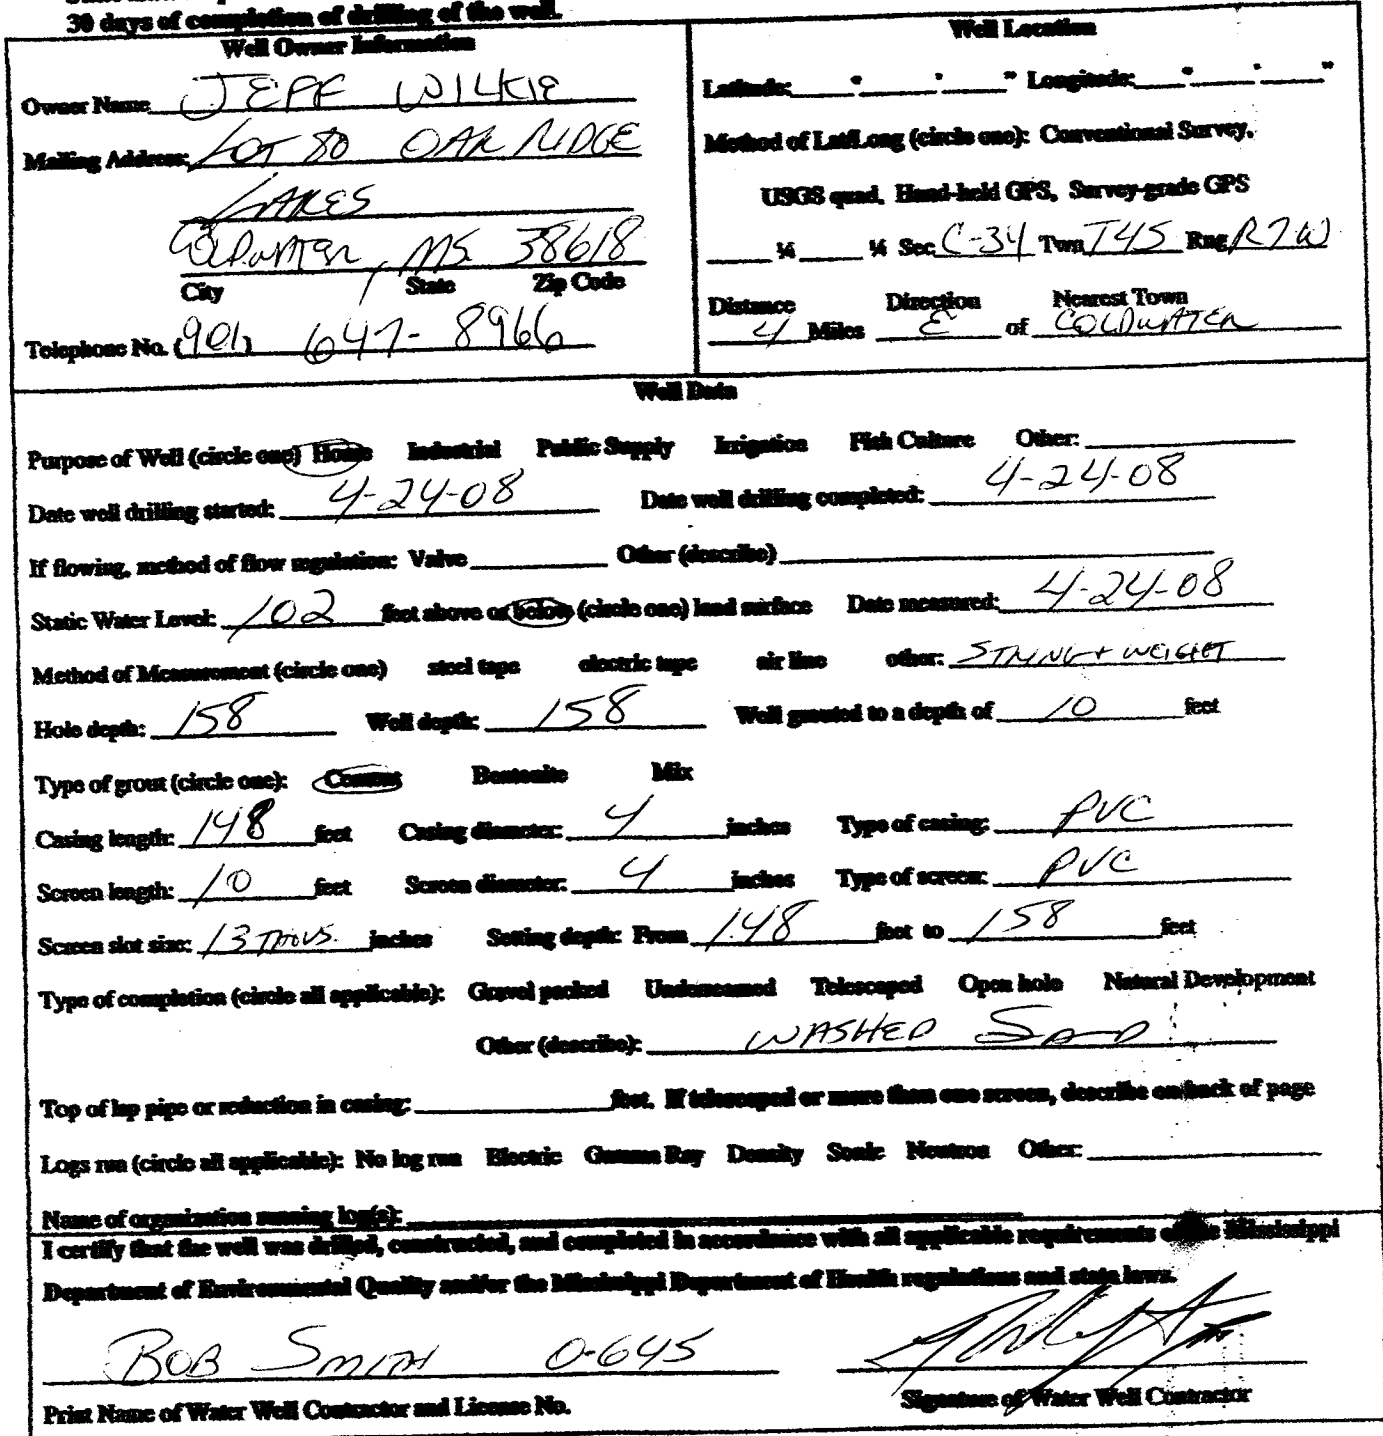 30 days of completion of drilling of the well.
Well Owner Information
Owner Name JEFF WILKIE
Mailing Address: LOT 80 OAK RIDGE
LAKES
COLDWATER, MS. 38618
City State Zip Code
Telephone No. (901) 647-8966
Well Location
Latitude:____°____'____" Longitude:____°____'____"
Method of Lat/Long (circle one): Conventional Survey,
USGS quad, Hand-held GPS, Survey-grade GPS
____ ¼ ____ ¼ Sec C-34 Twn T4S Rng R7W
Distance Direction Nearest Town
4 Miles E of COLDWATER
Well Data
Purpose of Well (circle one) Home Industrial Public Supply Irrigation Fish Culture Other: ____
Date well drilling started: 4-24-08 Date well drilling completed: 4-24-08
If flowing, method of flow regulation: Valve ____ Other (describe) ____
Static Water Level: 102 feet above or below (circle one) land surface Date measured: 4-24-08
Method of Measurement (circle one) steel tape electric tape air line other: STRING + WEIGHT
Hole depth: 158 Well depth: 158 Well grouted to a depth of 10 feet
Type of grout (circle one): Cement Bentonite Mix
Casing length: 148 feet Casing diameter: 4 inches Type of casing: PVC
Screen length: 10 feet Screen diameter: 4 inches Type of screen: PVC
Screen slot size: 13 THOUS. inches Setting depth: From 148 feet to 158 feet
Type of completion (circle all applicable): Gravel packed Underreamed Telescoped Open hole Natural Development
Other (describe): WASHED SAND
Top of lap pipe or reduction in casing: ____ feet. If telescoped or more than one screen, describe on back of page
Logs run (circle all applicable): No log run Electric Gamma Ray Density Sonic Neutron Other: ____
Name of organization running log(s): ____
I certify that the well was drilled, constructed, and completed in accordance with all applicable requirements of the Mississippi
Department of Environmental Quality and/or the Mississippi Department of Health regulations and state laws.
BOB SMITH 0-645
Print Name of Water Well Contractor and License No.
Signature of Water Well Contractor